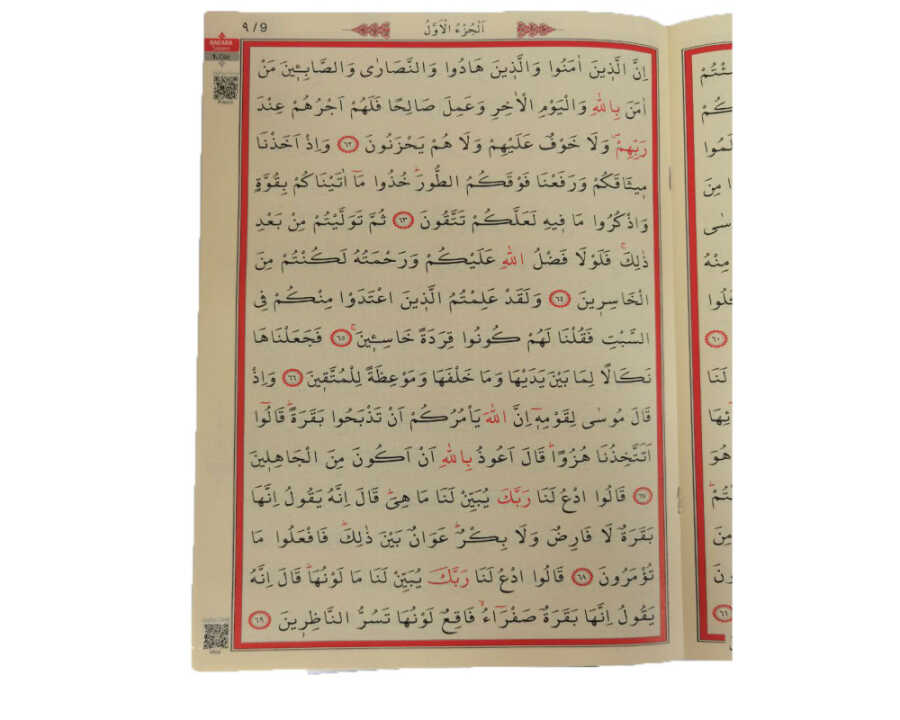 ٩ / 9
اَلْجُزْءُ الْاَوَّلُ
BAKARA
اِنَّ الَّذ۪ينَ اٰمَنُوا وَالَّذ۪ينَ هَادُوا وَالنَّصَارٰى وَالصَّابِـ۪ٔينَ مَنْ
اٰمَنَ بِاللّٰهِ وَالْيَوْمِ الْاٰخِرِ وَعَمِلَ صَالِحًا فَلَهُمْ اَجْرُهُمْ عِنْدَ
رَبِّهِمْۚ وَلَا خَوْفٌ عَلَيْهِمْ وَلَا هُمْ يَحْزَنُونَ ٦٢ وَاِذْ اَخَذْنَا
م۪يثَاقَكُمْ وَرَفَعْنَا فَوْقَكُمُ الطُّورَۜ خُذُوا مَٓا اٰتَيْنَاكُمْ بِقُوَّةٍ
وَاذْكُرُوا مَا ف۪يهِ لَعَلَّكُمْ تَتَّقُونَ ٦٣ ثُمَّ تَوَلَّيْتُمْ مِنْ بَعْدِ
ذٰلِكَۚ فَلَوْلَا فَضْلُ اللّٰهِ عَلَيْكُمْ وَرَحْمَتُهُ لَكُنْتُمْ مِنَ
الْخَاسِر۪ينَ ٦٤ وَلَقَدْ عَلِمْتُمُ الَّذ۪ينَ اعْتَدَوْا مِنْكُمْ فِي
السَّبْتِ فَقُلْنَا لَهُمْ كُونُوا قِرَدَةً خَاسِـ۪ٔينَۚ ٦٥ فَجَعَلْنَاهَا
نَكَالًا لِمَا بَيْنَ يَدَيْهَا وَمَا خَلْفَهَا وَمَوْعِظَةً لِلْمُتَّق۪ينَ ٦٦ وَاِذْ
قَالَ مُوسٰى لِقَوْمِه۪ٓ اِنَّ اللّٰهَ يَأْمُرُكُمْ اَنْ تَذْبَحُوا بَقَرَةًۜ قَالُٓوا
اَتَتَّخِذُنَا هُزُوًاۜ قَالَ اَعُوذُ بِاللّٰهِ اَنْ اَكُونَ مِنَ الْجَاهِل۪ينَ
٦٧ قَالُوا ادْعُ لَنَا رَبَّكَ يُبَيِّنْ لَنَا مَا هِيَۜ قَالَ اِنَّهُ يَقُولُ اِنَّهَا
بَقَرَةٌ لَا فَارِضٌ وَلَا بِكْرٌۜ عَوَانٌ بَيْنَ ذٰلِكَۜ فَافْعَلُوا مَا
تُؤْمَرُونَ ٦٨ قَالُوا ادْعُ لَنَا رَبَّكَ يُبَيِّنْ لَنَا مَا لَوْنُهَاۜ قَالَ اِنَّهُ
يَقُولُ اِنَّهَا بَقَرَةٌ صَفْرَٓاءُۙ فَاقِعٌ لَوْنُهَا تَسُرُّ النَّاظِر۪ينَ ٦٩